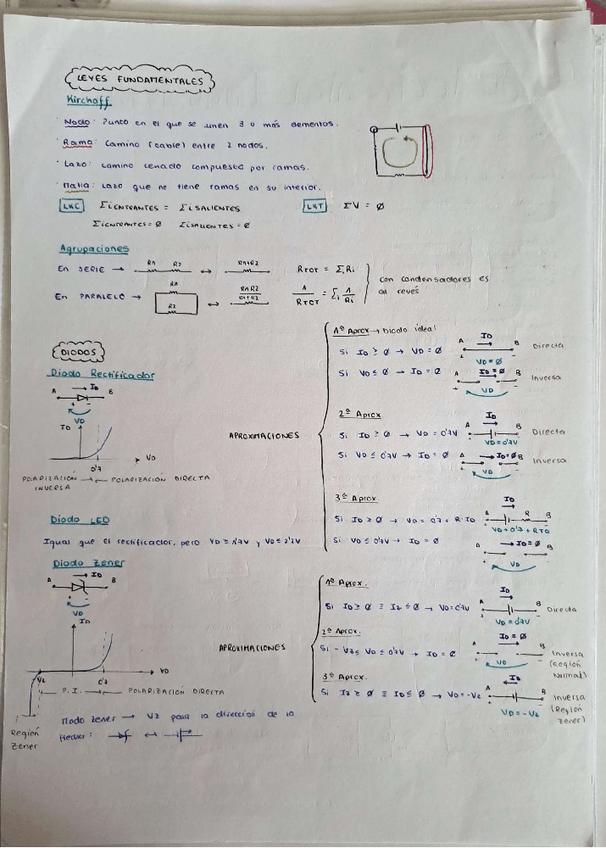 LEYES FUNDAMENTALES
Kirchoff
· Nodo: Punto en el que se unen 3 o más elementos.
· Rama: Camino (cable) entre 2 nodos.
· Lazo: Camino cerrado compuesto por ramas.
· Malla: Lazo que no tiene ramas en su interior.
LKC ΣIENTRANTES = ΣISALIENTES LKT ΣV = Ø
ΣIENTRANTES = Ø ΣISALIENTES = Ø
Agrupaciones
En SERIE → R1 R2 ↔ R1+R2 RTOT = ΣRi
En PARALELO → R1 R2 ↔ R1R2/R1+R2 1/RTOT = Σi 1/Ri
Con condensadores es al revés
DIODOS
Diodo Rectificador
A ID B
+ -
VD
ID
VD
0'7
POLARIZACIÓN INVERSA POLARIZACIÓN DIRECTA
APROXIMACIONES
1ª Aprox → Diodo ideal
Si ID ≥ Ø → VD = Ø A ID B VD = Ø Directa
Si VD ≤ Ø → ID = Ø ID = Ø VD Inversa
2ª Aprox
Si ID ≥ Ø → VD = 0'7V A ID B VD = 0'7V Directa
Si VD ≤ 0'7V → ID = Ø A ID = Ø B VD Inversa
3ª Aprox
Si ID ≥ Ø → VD = 0'7 + R·ID A ID R B VD = 0'7 + R·ID
Si VD ≤ 0'7V → ID = Ø ID = Ø VD
Diodo LED
Igual que el rectificador, pero VD ≥ 1'7V y VD ≤ 2'2V
Diodo Zener
A ID B
+ -
VD
ID
VD
Vz
0'7
P.I. POLARIZACIÓN DIRECTA
Región Zener
APROXIMACIONES
1ª Aprox.
Si ID ≥ Ø ≡ Iz ≤ Ø → VD = 0'7V A ID B VD = 0'7V Directa
2ª Aprox.
Si -Vz ≤ VD ≤ 0'7V → ID = Ø A ID = Ø B VD Inversa (Región Normal)
3ª Aprox.
Si Iz ≥ Ø ≡ ID ≤ Ø → VD = -Vz A ID B VD = -Vz Inversa (Región Zener)
Modo Zener → Vz para la dirección de la
flecha: ↔